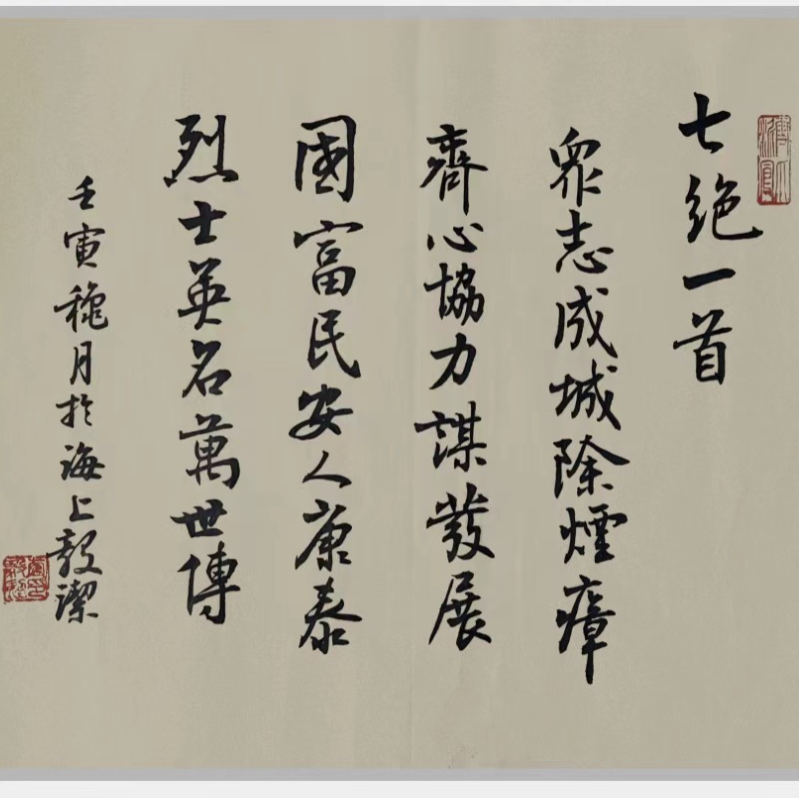 七绝一首
眾志成城除煙瘴
齊心協力謀發展
國富民安人康泰
烈士英名萬世傳
壬寅穐月於海上毅潔